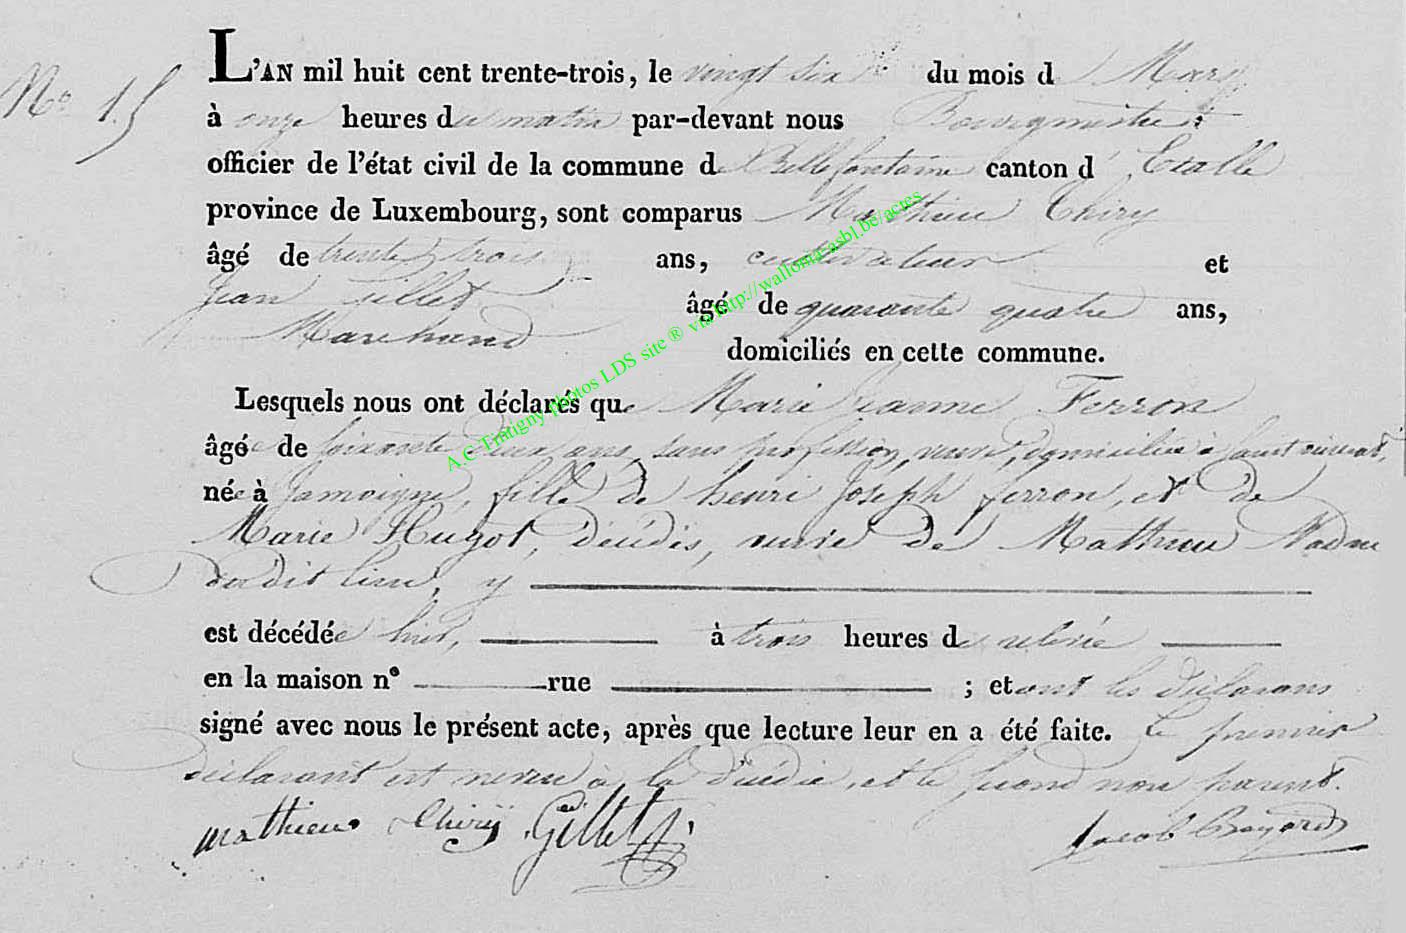 No 15
L'AN mil huit cent trente-trois, le vingt six du mois de Mars
à onze heures du matin par-devant nous Bourgmestre
officier de l'état civil de la commune de Bellefontaine canton d'Etalle
province de Luxembourg, sont comparus Mathieu Thiry
âgé de trente trois ans, cultivateur et
Jean Gillet âgé de quarante quatre ans,
Marchand domiciliés en cette commune.
Lesquels nous ont déclarés que Marie Jeanne Ferron
âgée de soixante deux ans, sans profession, veuve, domiciliée à Saint vincent,
née à Jamoigne, fille de henri Joseph ferron, et de
Marie Hugot, décédés, veuve de Mathieu
dudit lieu, y
est décédée hier, à trois heures de relevée
en la maison n° rue ; et ont les déclarans
signé avec nous le présent acte, après que lecture leur en a été faite. Le premier
déclarant est neveu à la décédée, et le second non parent.
Mathieu Thirÿ Gillet Jacob
A.C Tintigny photos LDS site ® via http://wallonia-asbl.be/actes